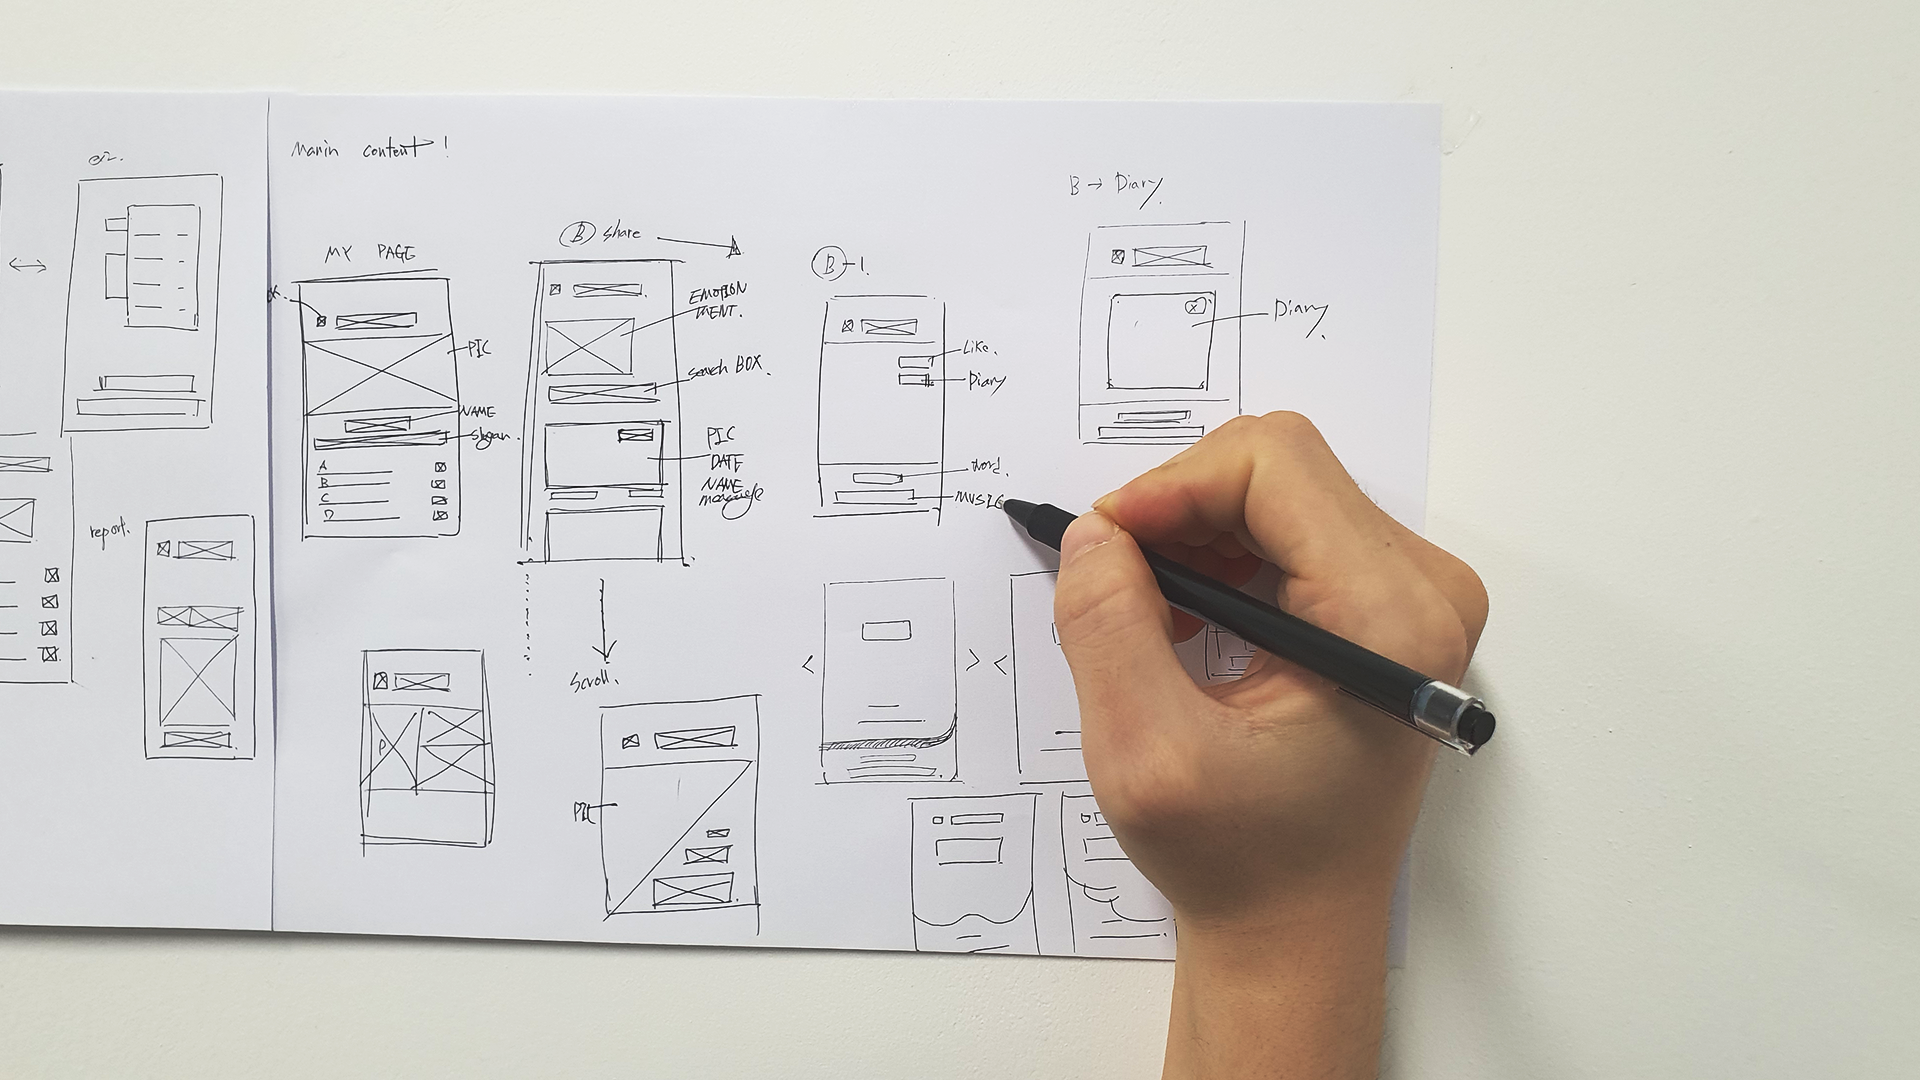 Manin content !
MY PAGE
PIC
NAME
slogan.
A
B
C
D
B share
EMOTION
search BOX.
PIC
DATE
NAME
message
scroll.
PIC
B-1.
Like.
Diary
word.
MUSIC
B → Diary.
Diary.
report.
P